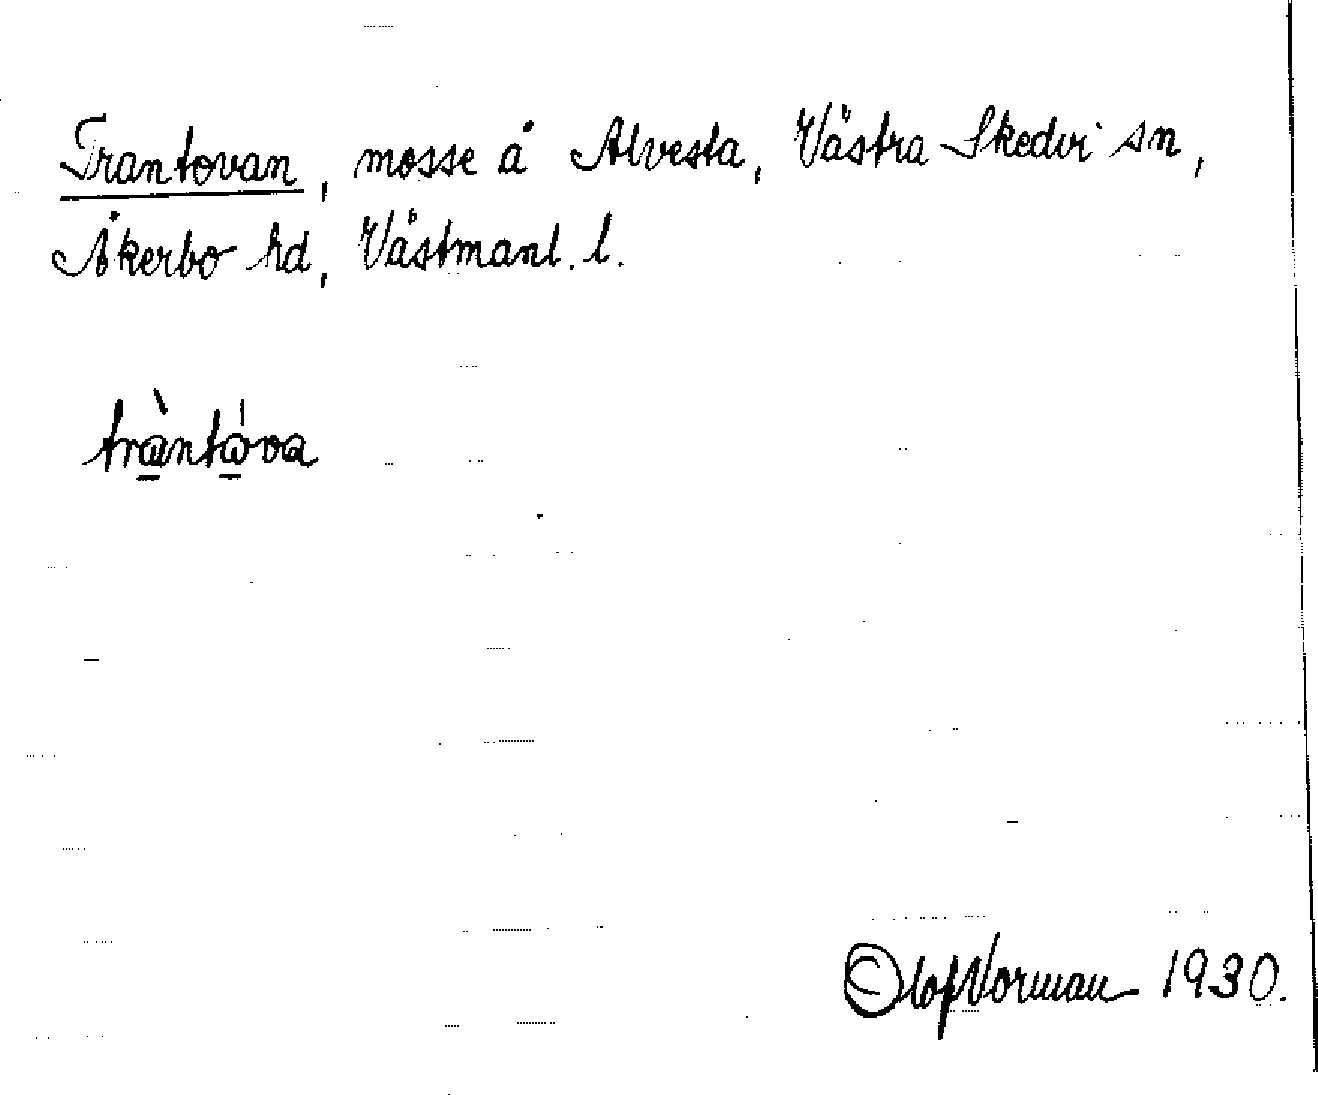 Trantovan, mosse å Alvesta, Västra Skedvi sn,
Åkerbo hd, Västmanl. l.
tràntóva
Olof Norman 1930.